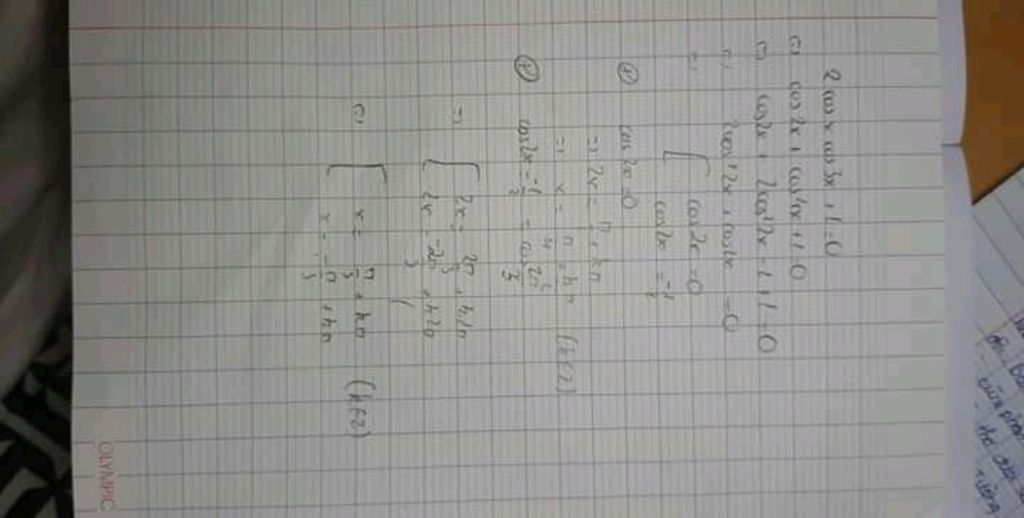 2 cos x cos 3x + 1 = 0
⇔ cos 2x + cos 4x + 1 = 0
⇔ cos 2x + 2cos² 2x - 1 + 1 = 0
⇔ 2cos² 2x + cos 2x = 0
⇔ [ cos 2x = 0
cos 2x = -1/2
⊕ cos 2x = 0
⇒ 2x = π/2 + kπ
⇔ x = π/4 + k π/2 (k∈Z)
⊕ cos 2x = -1/2 = cos 2π/3
⇒ [ 2x = 2π/3 + k2π
2x = -2π/3 + k2π
⇔ [ x = π/3 + kπ
x = -π/3 + kπ (k∈Z)
OLYMPIC